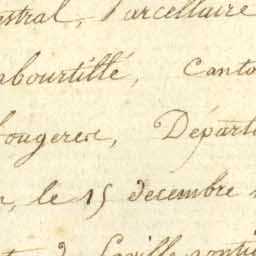 estral, Parcellaire
abourtillé, Canto
fougeres, Départ
, le 15 decembre